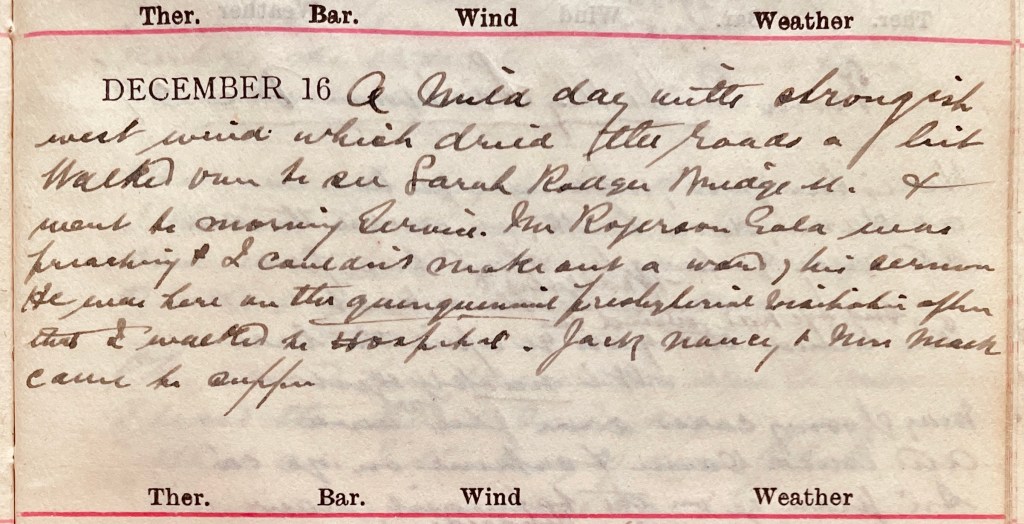 Ther. Bar. Wind Weather
DECEMBER 16 A mild day with strongish
west wind which dried the roads a bit
Walked over to see Sarah Rodger Bridge St. &
went to morning Service. Mr Rogerson Gala was
preaching & I couldn't make out a word of his sermon
He was here on the quinquennial presbyterial visitation after
that I walked to Hospital. Jack Nancy & Mrs Mack
came to supper
Ther. Bar. Wind Weather